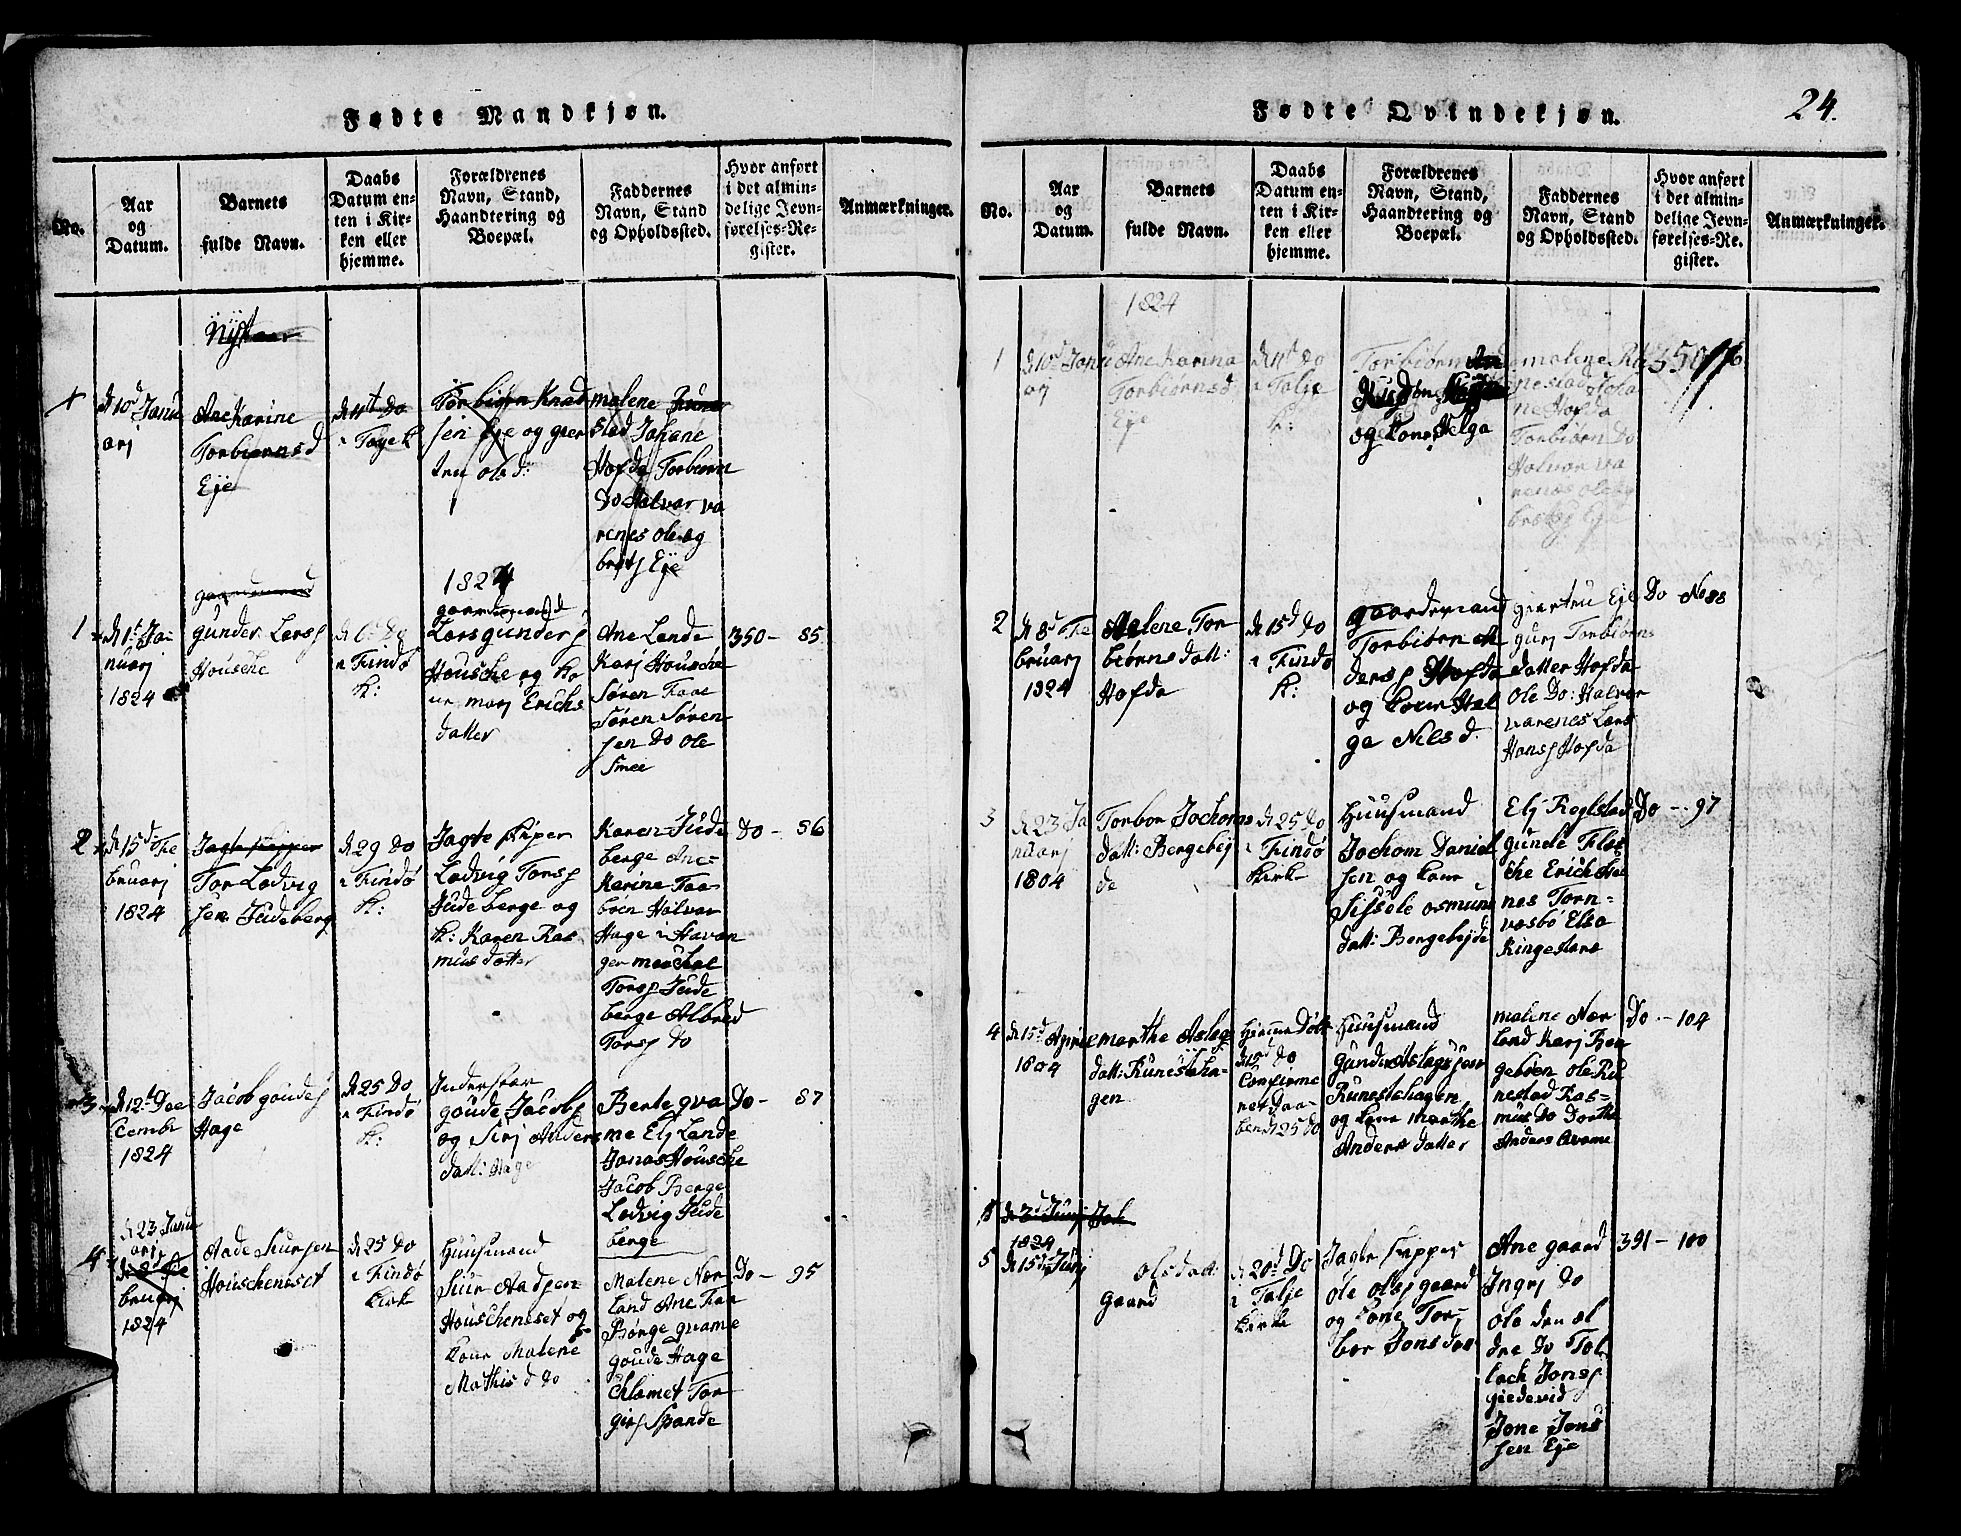 Fødte Mandkjøn.
No.
Aar
og
Datum.
Barnets
fulde Navn.
Daabs
Datum en-
ten i Kir-
ken eller
hjemme.
Forældrenes
Navn, Stand,
Haandtering og
Boepæl.
Faddernes
Navn, Stand
og Opholdssted.
Hvor anført
i det almin-
delige Jevn-
førelses-Re-
gister.
Anmærkninger.
Nyt aar
1
d 10d Janu
arj
Ane Karine
Torbiørnsd
Eje
d 11t Do
i Talje K
Torbiørn Knud
sen Eje og gier
tru ols d:
malene Rune
stad Johane
Hofda Torbiørn
Do Halvar va
renes ole og
brotj Eje
1824
1
d 1st Ja-
nuarj
1824
gunder Larsj
Housche
d 6t Do
i Findø
K:
gaardmand
Lars gundersj
Housche og Ko
ne marj Erichs
datter
Ane Lande
Karj Housche
Søren Faae
Søren Søren
sen Do ole
Smee
350 - 85
2
d 15d Fe
bruarj
1824
Tor Ladvig
sen Judeberg
d 29 Do
i Findø
K:
Jagte skiper
Ladvig Torsj
Judeberge og
K: Karen Ras
mus datter
Karen Jude
berge Ane
Karine Faa-
bøen Halvar
Hage i Stavan
ger michel
Torsj Jude
berge Albred
Torsj Do
Do - 86
3
d 12t Dee
cembr
1824
Jacob goudesj
Hage
d 25 Do
i Findø
K:
Inderstøer
goude Jacobsj
og Sirj Anders
datt: Hage
Berte gva
me Elj Lande
Jonas Housche
Jacob Berge
Ladvig Jude
berge
Do - 87
4
d 23 Janu
arj
bruarj
1824
Aade Siursen
Houscheneset
d 25 Do
i Findø
Kirke
Huusmand
Siur Aadsen
Houscheneset og
Kone Malene
Mathis d Do
Malene Nær
land Ane Faa
Børge gvame
goude Hage
Chlomet Tor
girj Spande
Do - 95
Fødte Qvindekjøn.
24.
No.
Aar
og
Datum.
Barnets
fulde Navn.
Daabs
Datum en-
ten i Kir-
ken eller
hjemme.
Forældrenes
Navn, Stand,
Haandtering og
Boepæl.
Faddernes
Navn, Stand
og Opholdssted.
Hvor anført
i det almin-
delige Jevn-
førelses-Re-
gister.
Anmærkninger.
1824
1
d 10d Janu
arj
Ane Karina
Torbiørnsd
Eje
d 11t Do
i Talje
K:
Torbiørn
og Kone Helga
malene Ru
nestad Joha
ne Hofda
Torbiørn Do
Halvor va
renes ole og
brotj Eje
350
2
d 8d Fe
bruarj
1824
Malene Tor
biørns datt:
Hofda
d 15d Do
i Findø
K:
gaardmand
Torbiørn A
dersj Hofda
og Kone Hel
ge Nils d.
giertru Eje
gurj Torbiørns
datter Hofda
ole Do: Halvor
varenes Lars
Hansj Hofda
Do No 88
3
d 23 Ja
nuarj
1804
Torbor Jochoms
datt: Bergebej
de
d 25 Do
i Findø
Kirke
Huusmand
Jochom Daniel
sen og Kone
Sissele osmun
datt: Bergebejde
Elj Reglstad
gunele Fles
che Erich Hel
nes Torn-
vasbø Elsa
Ringestare
Do - 97
4
d 15d Aprill
1804
marthe Aslag
datt: Runeshha-
gen
Hiemme Døbt
d 18d Do
Confirme
ret Daa-
ben d 25 Do
Huusmand
gunder Aslagsjen
Runeshhagen
og Kone marthe
Anders datter
malene Nær
land Karj Ben
gebøen ole Ru
nestad Ras-
mus Do Dorthe
Anders Qvame
Do - 104
5
1824
d 15d Junj
olsdatt
gaard
d 20d Do
i Talje
Kirke
Jagte skipper
ole olsj gaard
og Kone Tor-
bor Jonsdat
Ane gaard
Ingrj Do
ole den el
dre Do Tol
lach Jonsj
giedevid
Jone Jons
sen Eje
391 - 100